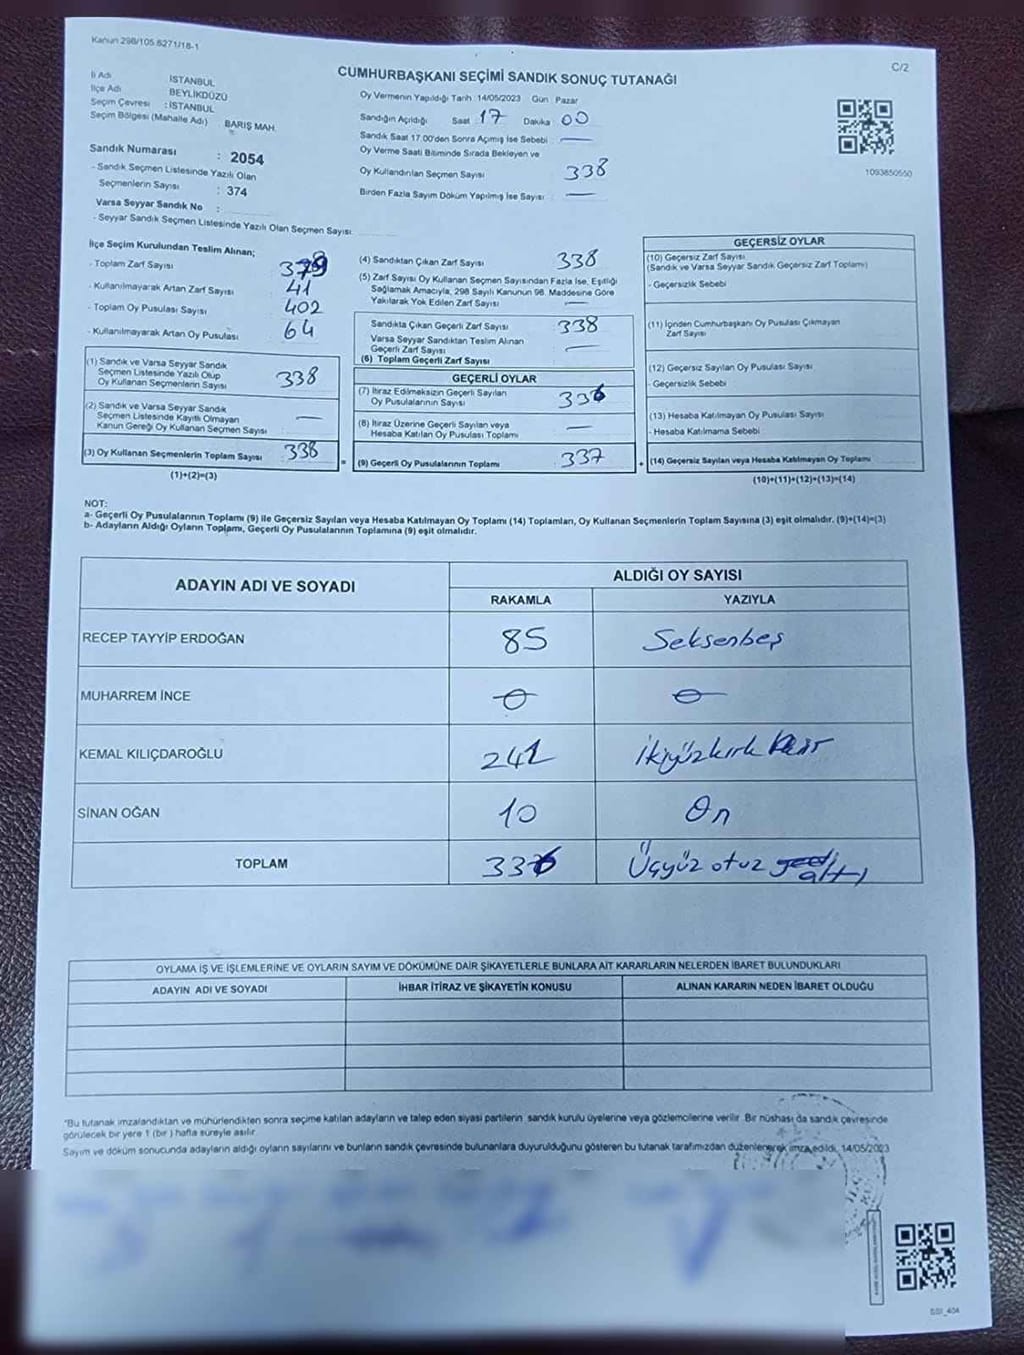 Kanun 298/105.6271/18-1
C/2
CUMHURBAŞKANI SEÇİMİ SANDIK SONUÇ TUTANAĞI
İl Adı İSTANBUL
İlçe Adı BEYLİKDÜZÜ
Seçim Çevresi : İSTANBUL
Seçim Bölgesi (Mahalle Adı) BARIŞ MAH.
Sandık Numarası : 2054
- Sandık Seçmen Listesinde Yazılı Olan
Seçmenlerin Sayısı : 374
Varsa Seyyar Sandık No :
- Seyyar Sandık Seçmen Listesinde Yazılı Olan Seçmen Sayısı
Oy Vermenin Yapıldığı Tarih :14/05/2023 Gün Pazar
Sandığın Açıldığı Saat 17 Dakika 00
Sandık Saat 17.00'den Sonra Açılmış İse Sebebi —
Oy Verme Saati Bitiminde Sırada Bekleyen ve
Oy Kullandırılan Seçmen Sayısı 338
Birden Fazla Sayım Döküm Yapılmış İse Sayısı : —
1093850550
İlçe Seçim Kurulundan Teslim Alınan;
- Toplam Zarf Sayısı
- Kullanılmayarak Artan Zarf Sayısı 41
- Toplam Oy Pusulası Sayısı 402
- Kullanılmayarak Artan Oy Pusulası 64
(1) Sandık ve Varsa Seyyar Sandık
Seçmen Listesinde Yazılı Olup
Oy Kullanan Seçmenlerin Sayısı 338
(2) Sandık ve Varsa Seyyar Sandık
Seçmen Listesinde Kayıtlı Olmayan
Kanun Gereği Oy Kullanan Seçmen Sayısı —
(3) Oy Kullanan Seçmenlerin Toplam Sayısı 338
(1)+(2)=(3)
(4) Sandıktan Çıkan Zarf Sayısı 338
(5) Zarf Sayısı Oy Kullanan Seçmen Sayısından Fazla İse, Eşitliği
Sağlamak Amacıyla, 298 Sayılı Kanunun 98. Maddesine Göre
Yakılarak Yok Edilen Zarf Sayısı —
Sandıkta Çıkan Geçerli Zarf Sayısı 338
Varsa Seyyar Sandıktan Teslim Alınan
Geçerli Zarf Sayısı —
(6) Toplam Geçerli Zarf Sayısı
GEÇERLİ OYLAR
(7) İtiraz Edilmeksizin Geçerli Sayılan
Oy Pusulalarının Sayısı 336
(8) İtiraz Üzerine Geçerli Sayılan veya
Hesaba Katılan Oy Pusulası Toplamı —
= (9) Geçerli Oy Pusulalarının Toplamı 337
GEÇERSİZ OYLAR
(10) Geçersiz Zarf Sayısı
(Sandık ve Varsa Seyyar Sandık Geçersiz Zarf Toplamı)
- Geçersizlik Sebebi
(11) İçinden Cumhurbaşkanı Oy Pusulası Çıkmayan
Zarf Sayısı
(12) Geçersiz Sayılan Oy Pusulası Sayısı
- Geçersizlik Sebebi
(13) Hesaba Katılmayan Oy Pusulası Sayısı
- Hesaba Katılmama Sebebi
+ (14) Geçersiz Sayılan veya Hesaba Katılmayan Oy Toplamı
(10)+(11)+(12)+(13)=(14)
NOT:
a- Geçerli Oy Pusulalarının Toplamı (9) ile Geçersiz Sayılan veya Hesaba Katılmayan Oy Toplamı (14) Toplamları, Oy Kullanan Seçmenlerin Toplam Sayısına (3) eşit olmalıdır. (9)+(14)=(3)
b- Adayların Aldığı Oyların Toplamı, Geçerli Oy Pusulalarının Toplamına (9) eşit olmalıdır.
ADAYIN ADI VE SOYADI
ALDIĞI OY SAYISI
RAKAMLA YAZIYLA
RECEP TAYYİP ERDOĞAN 85 Seksenbeş
MUHARREM İNCE 0 0
KEMAL KILIÇDAROĞLU 241 İkiyüzkırk bir
SİNAN OĞAN 10 On
TOPLAM 336 Üçyüz otuz yedi altı
OYLAMA İŞ VE İŞLEMLERİNE VE OYLARIN SAYIM VE DÖKÜMÜNE DAİR ŞİKAYETLERLE BUNLARA AİT KARARLARIN NELERDEN İBARET BULUNDUKLARI
ADAYIN ADI VE SOYADI İHBAR İTİRAZ VE ŞİKAYETİN KONUSU ALINAN KARARIN NEDEN İBARET OLDUĞU
"Bu tutanak imzalandıktan ve mühürlendikten sonra seçime katılan adayların ve talep eden siyasi partilerin sandık kurulu üyelerine veya gözlemcilerine verilir. Bir nüshası da sandık çevresinde
görülecek bir yere 1 (bir ) hafta süreyle asılır.
Sayım ve döküm sonucunda adayların aldığı oyların sayılarını ve bunların sandık çevresinde bulunanlara duyurulduğunu gösteren bu tutanak tarafımızdan düzenlenerek imza edildi. 14/05/2023